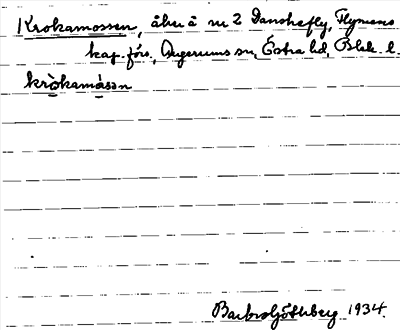 Krokamossen, åker å nr 2 Danskefly, Flymens
kap.förs., Augerums sn, Östra hd, Blek. l.
kròkamåsən
Barbro Göthberg 1934.